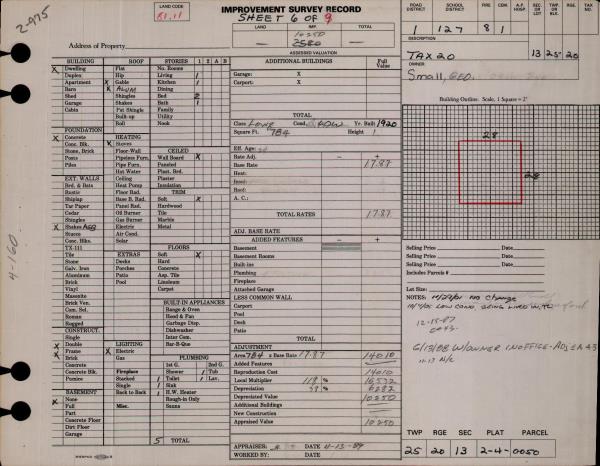 2975
LAND CODE
R1.11
IMPROVEMENT SURVEY RECORD
SHEET 6 OF 9
LAND
IMP.
TOTAL
10250
2580
ASSESSED VALUATION
Address of Property
ROAD DISTRICT
SCHOOL DISTRICT
FIRE
CEM.
A.P. HOSP.
SEC. OR LOT
TWP. OR BLK.
RGE
TAX NO.
127 8 1
TAX 20
13 25 20
OWNER
Small, GEO.
Building Outline: Scale, 1 Square = 2'
28
28
BUILDING
X Dwelling
Duplex
Apartment
Barn
Shed
Garage
Cabin
FOUNDATION
X Concrete
Conc. Blk.
Stone, Brick
Posts
Piles
EXT. WALLS
Brd. & Bats
Rustic
Shiplap
Tar Paper
Cedar
Shingles
X Shakes Asb
Stucco
Conc. Blks.
TX-111
Tile
Stone
Galv. Iron
Aluminum
Brick
Vinyl
Masonite
Brick Ven.
Com. Sel.
Roman
Rugged
CONSTRUCT.
Single
Double
X Frame
Brick
Concrete
Pumice
BASEMENT
X None
Full
Part
Concrete Floor
Dirt Floor
Garage
4-160
ROOF
Flat
Hip
X Gable
X ALUM
Shingles
Shakes
Pat Shingle
Built-up
Roll
HEATING
X Stoves
Floor-Wall
Pipeless Furn.
Pipe Furn.
Hot Water
Heat Pump
Floor Rad.
Base B. Rad.
Panel Rad.
Oil Burner
Gas Burner
Electric
Air Cond.
Solar
EXTRAS
Decks
Porches
Patio
Pool
Carpet
LIGHTING
X Electric
Gas
Fireplace
Stacked
Single
Back to Back
Misc.
STORIES 1 2 A B
No. Rooms
Living 1
Kitchen 1
Dining
Bed 2
Bath 1
Family
Utility
Nook
CEILED
Wall Board X
Paneled
Plast.-Bd.
Plaster
Insulation
TRIM
Soft X
Hardwood
Tile
Marble
Metal
FLOORS
Soft X
Hard
Concrete
Asp. Tile
Linoleum
BUILT-IN APPLIANCES
Range & Oven
Hood & Fan
Garbage Disp.
Dishwasher
Inter Com.
Bar-B-Que
PLUMBING
1st G. 2nd G.
Shower 1 Tub
1 Toilet 1 Lav.
1 Sink
1 H.W. Heater
Rough-in Only
Sauna
5 TOTAL
ADDITIONAL BUILDINGS
Full Value
Garage: X
Carport: X
TOTAL
Class Low4 Cond. LOW Yr. Built 1920
Square Ft. 784 Height 1
Eff. Age:
Rate Adj. - +
Base Rate 17.87
Heat:
Roof:
A. C.:
TOTAL RATES 17.87
ADJ. BASE RATE
ADDED FEATURES - +
Basement
Basement Rooms
Built-ins
Plumbing
Fireplace
Attached Garage
LESS COMMON WALL
Carport
Pool
Deck
Patio
TOTAL
ADJUSTMENT
Area 784 x Base Rate 17.87 14010
Added Features
Reproduction Cost 14010
Local Multiplier 118 % 16532
Depreciation 38 % 6282
Depreciated Value 10250
Additional Buildings
New Construction
Appraised Value 10250
APPRAISER: DATE 4-13-84
WORKED BY: DATE
Selling Price Date
Selling Price Date
Selling Price Date
Includes Parcels #
Lot Size:
NOTES: no change
12-15-87
6/13/88 W/OWNER IN OFFICE - ADJ EA 43
11-13 N/C
TWP RGE SEC PLAT PARCEL
25 20 13 2-4-0050